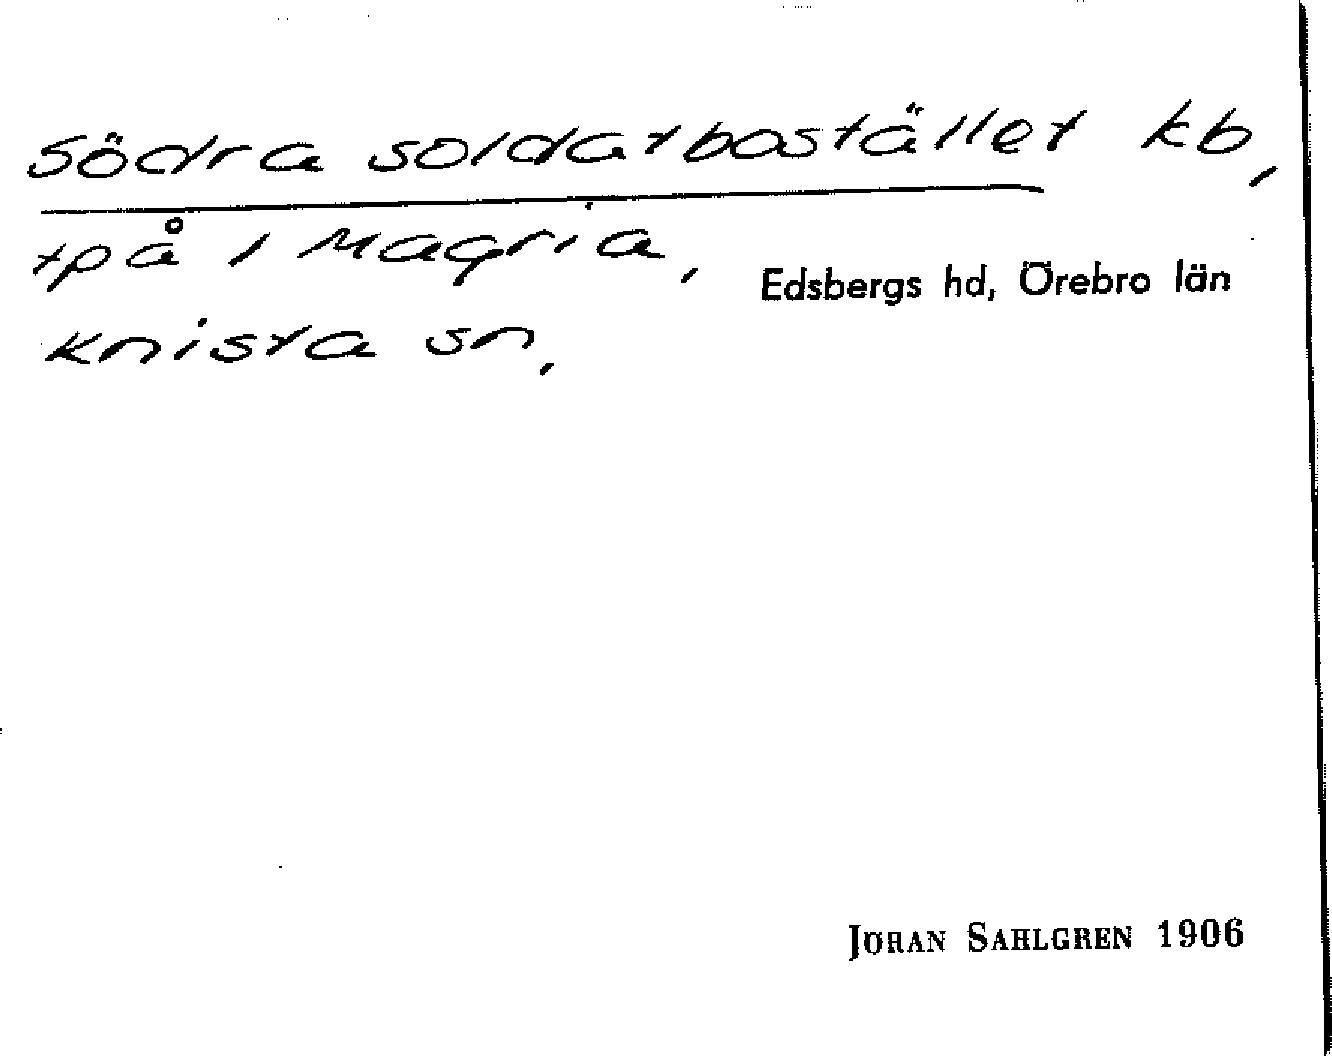 Södra soldatbostället kb,
tpå i Magria, Edsbergs hd, Örebro län
Knista sn,
JÖRAN SAHLGREN 1906